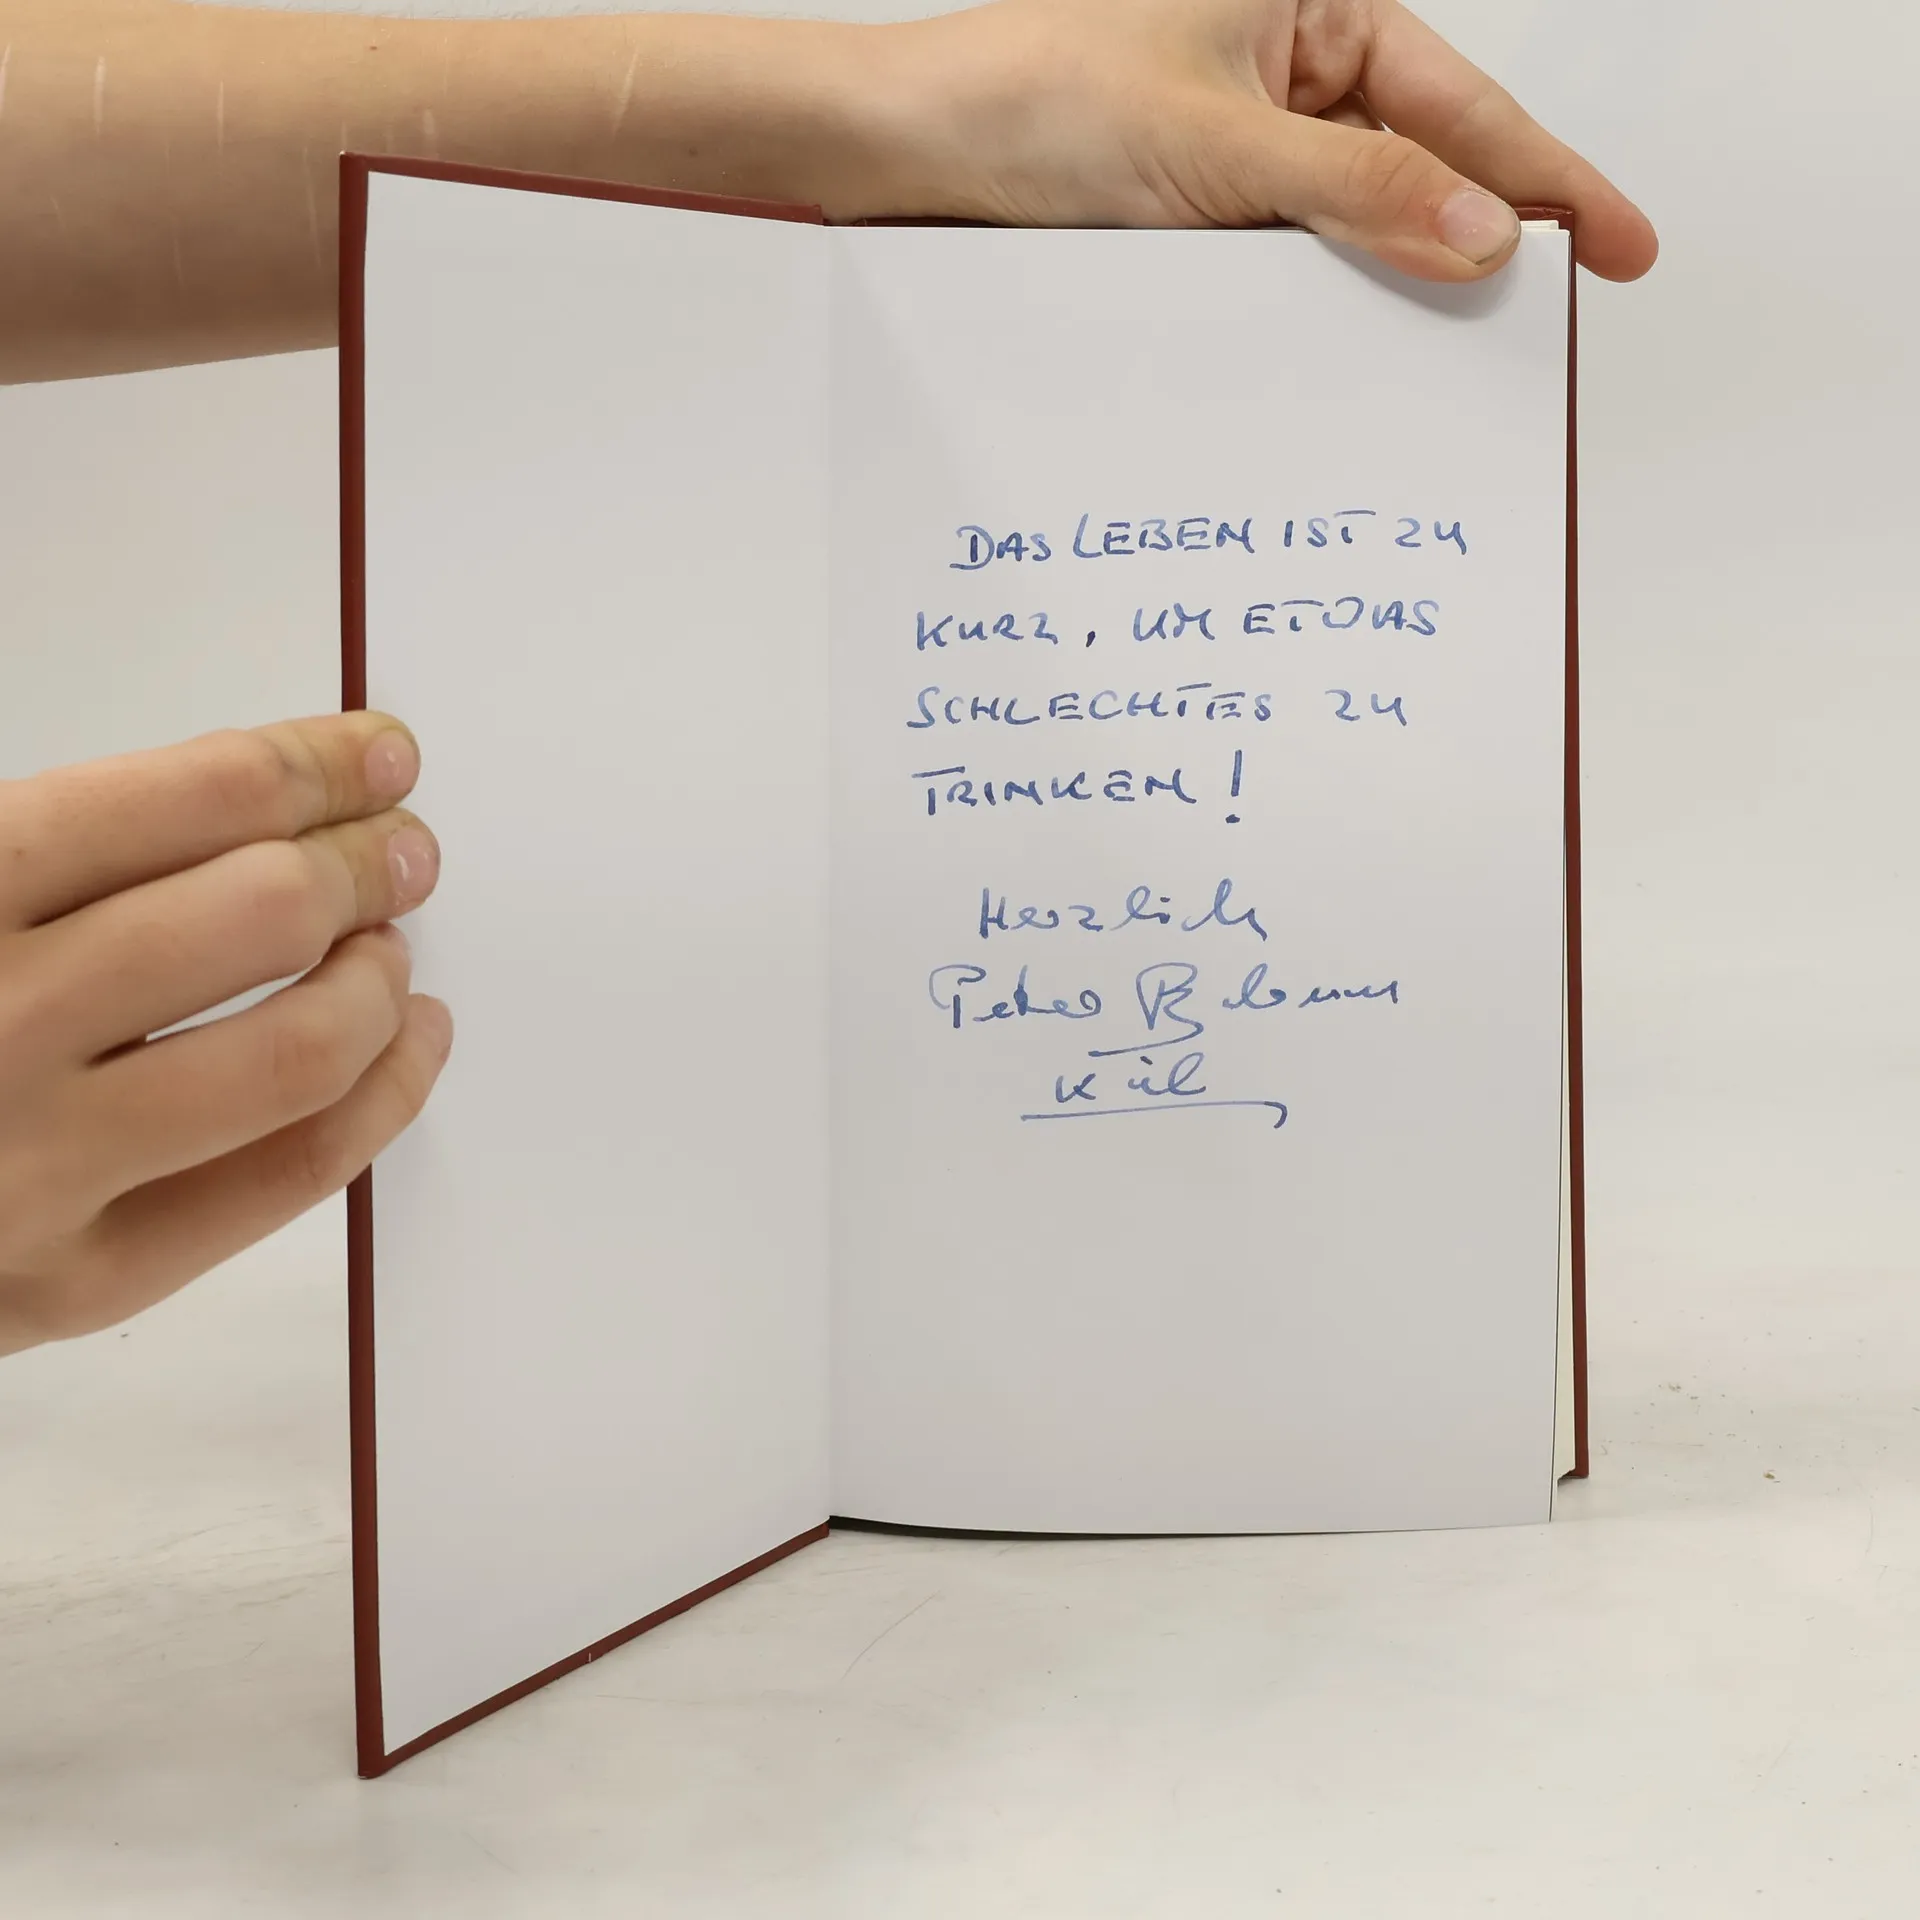 DAS LEBEN IST ZU
KURZ, UM ETWAS
SCHLECHTES ZU
TRINKEN!
Herzlich
Peter